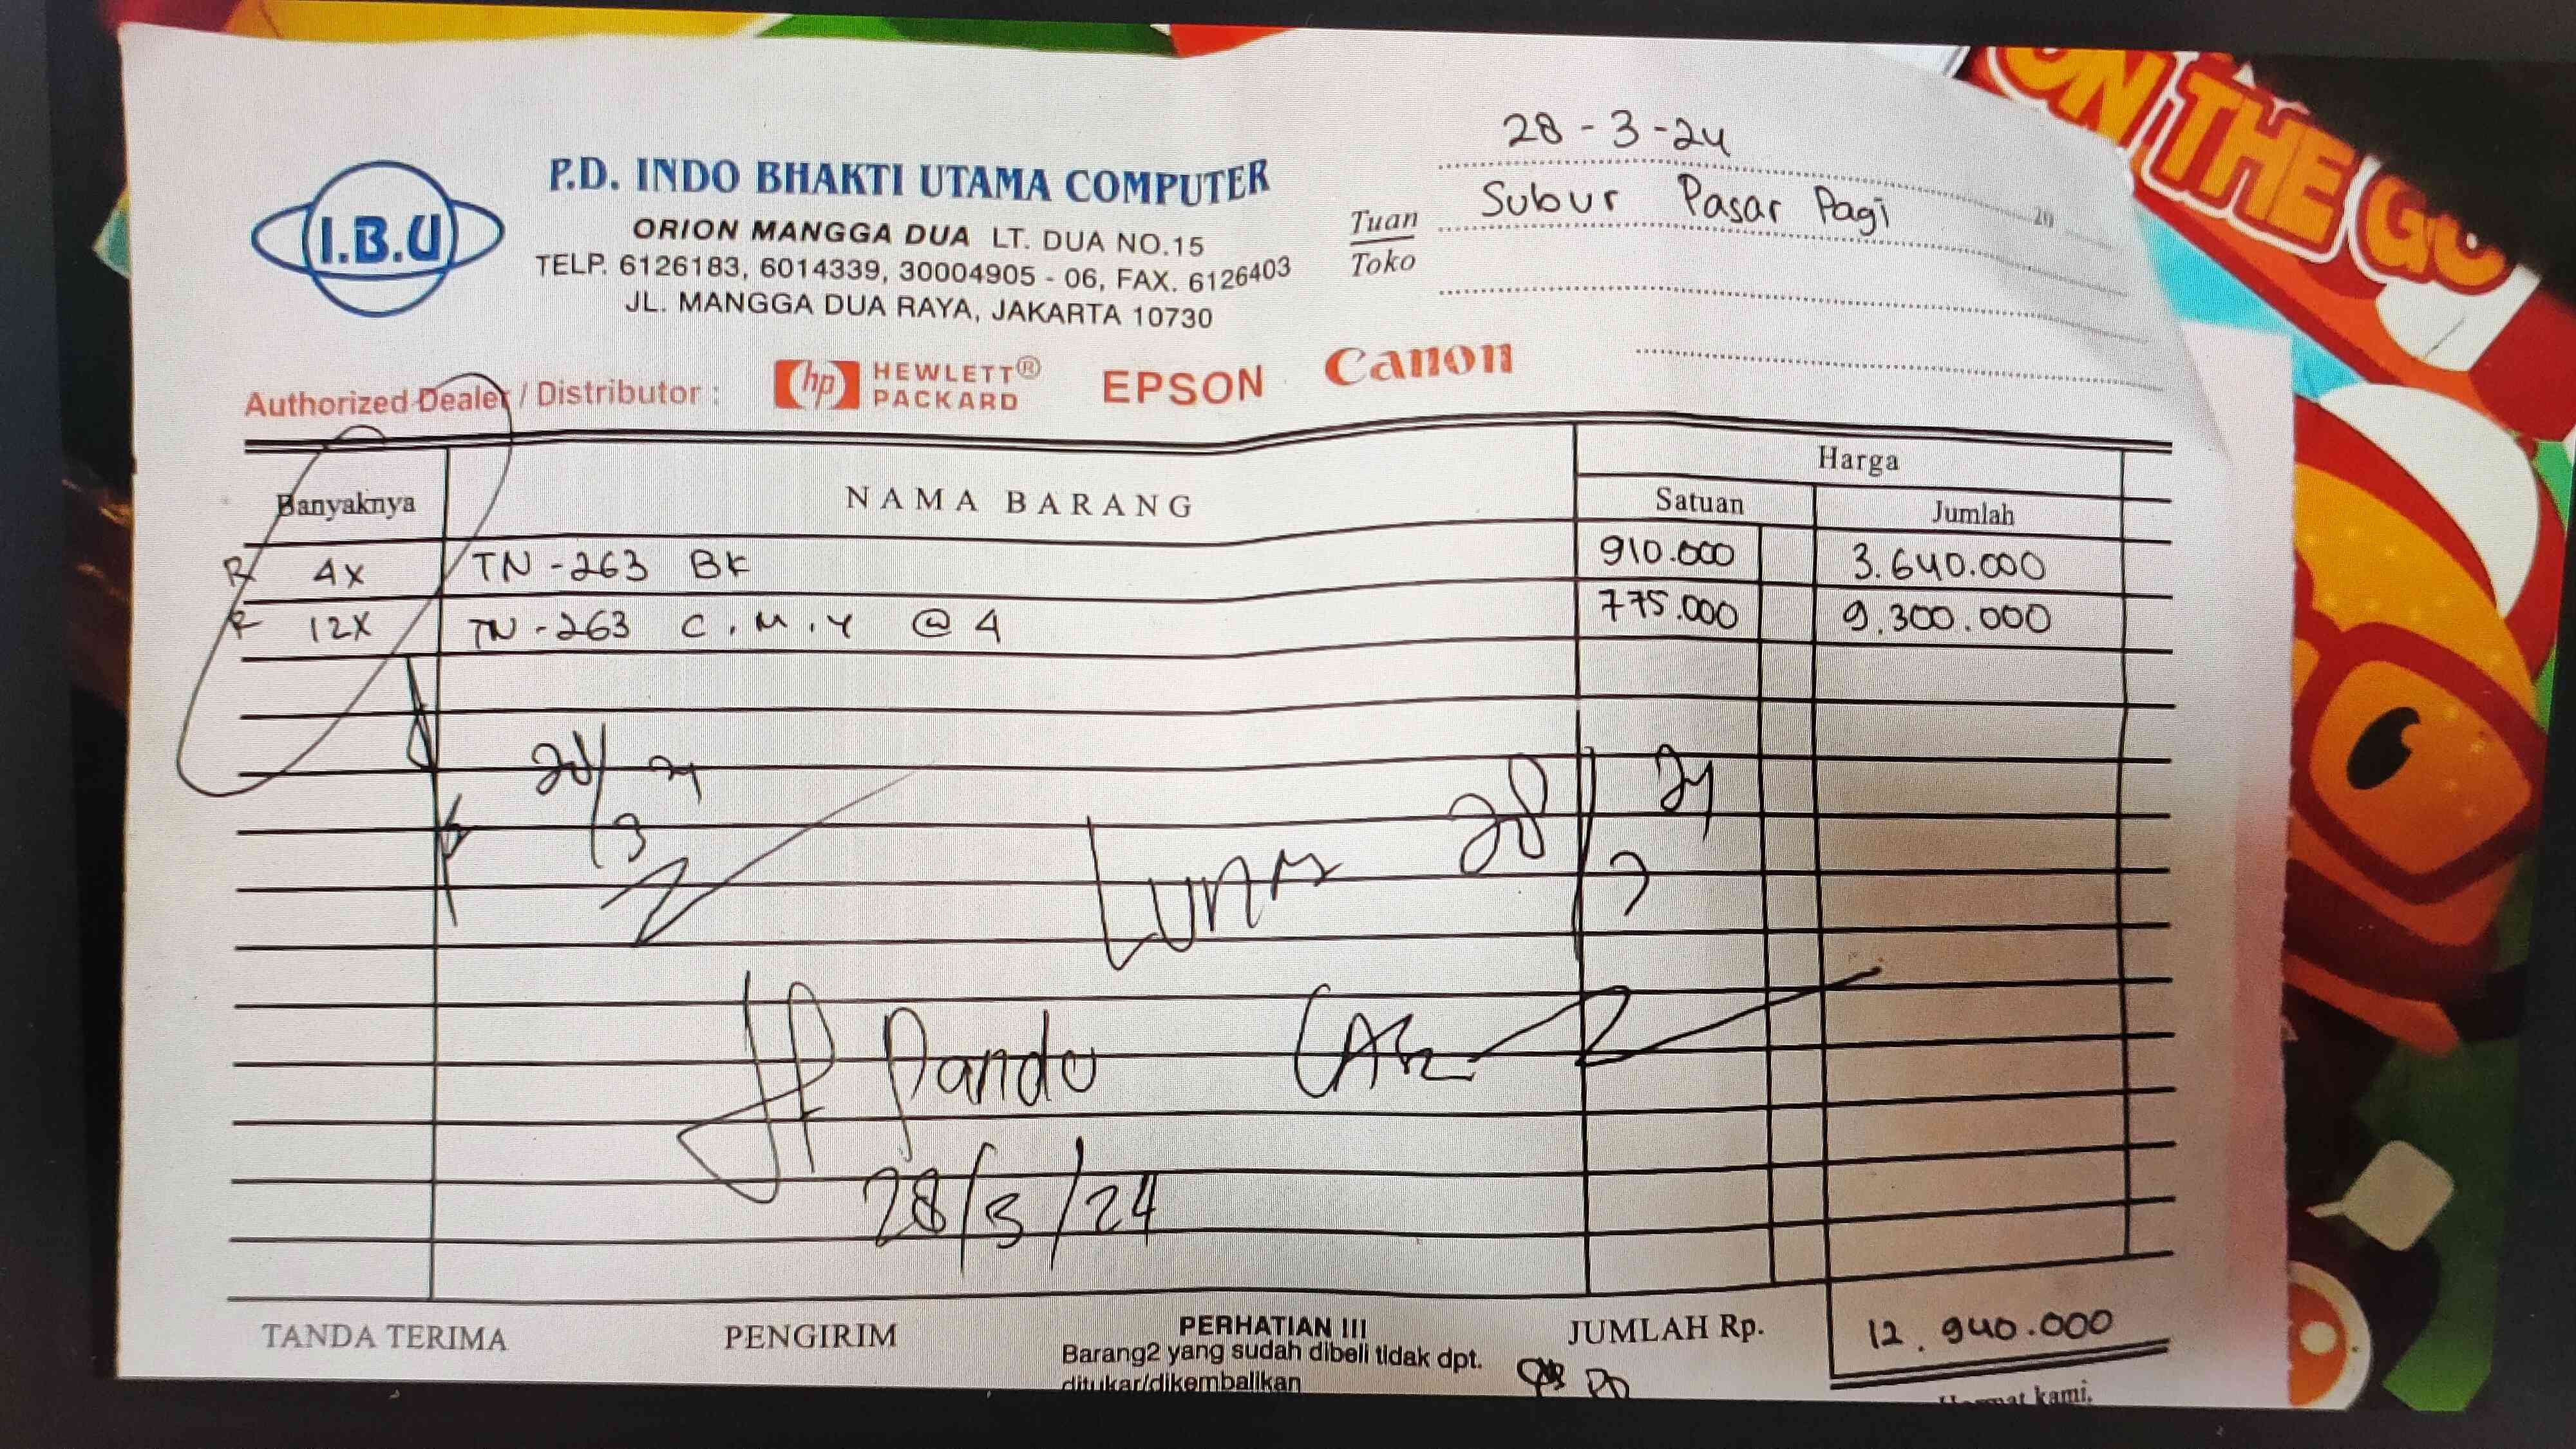 28-3-24
20
I.B.U
P.D. INDO BHAKTI UTAMA COMPUTER
ORION MANGGA DUA LT. DUA NO.15
TELP. 6126183, 6014339, 30004905 - 06, FAX. 6126403
JL. MANGGA DUA RAYA, JAKARTA 10730
Tuan
Toko
Subur Pasar Pagi
Authorized Dealer / Distributor :
hp HEWLETT® PACKARD
EPSON
Canon
ON THE GO
Banyaknya
NAMA BARANG
Harga
Satuan
Jumlah
4x TN-263 BK 910.000 3.640.000
12x TN-263 C.M.Y @ 4 775.000 9.300.000
28/3 24
Lunas 28/3 24
Pando
28/3/24
TANDA TERIMA
PENGIRIM
PERHATIAN !!!
Barang2 yang sudah dibeli tidak dpt.
ditukar/dikembalikan
JUMLAH Rp. 12.940.000
Hormat kami,